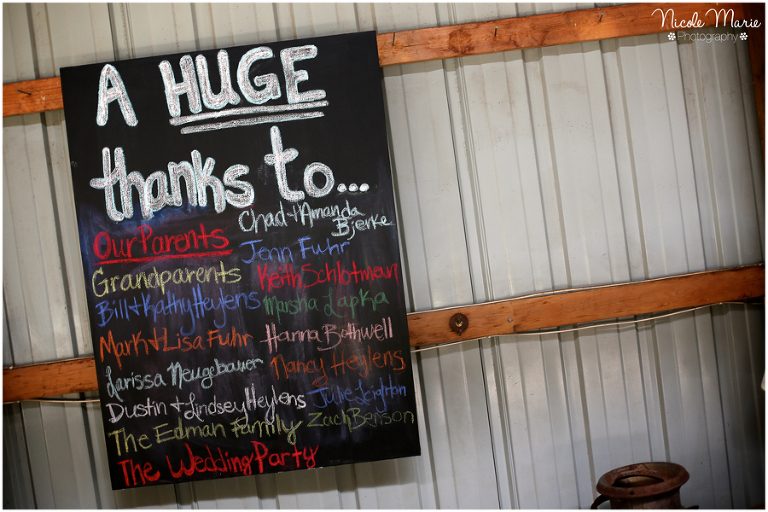 A HUGE
thanks to...
Chad + Amanda
Bjerke
Our Parents
Jenn Fuhr
Grandparents
Keith Schlotman
Bill + Kathy Heylens
Marsha Lapka
Mark + Lisa Fuhr
Hanna Bothwell
Larissa Neugebauer
Nancy Heylens
Dustin + Lindsey Heylens
Julie Leighton
The Edman Family
Zach Benson
The Wedding Party
Nicole Marie
Photography